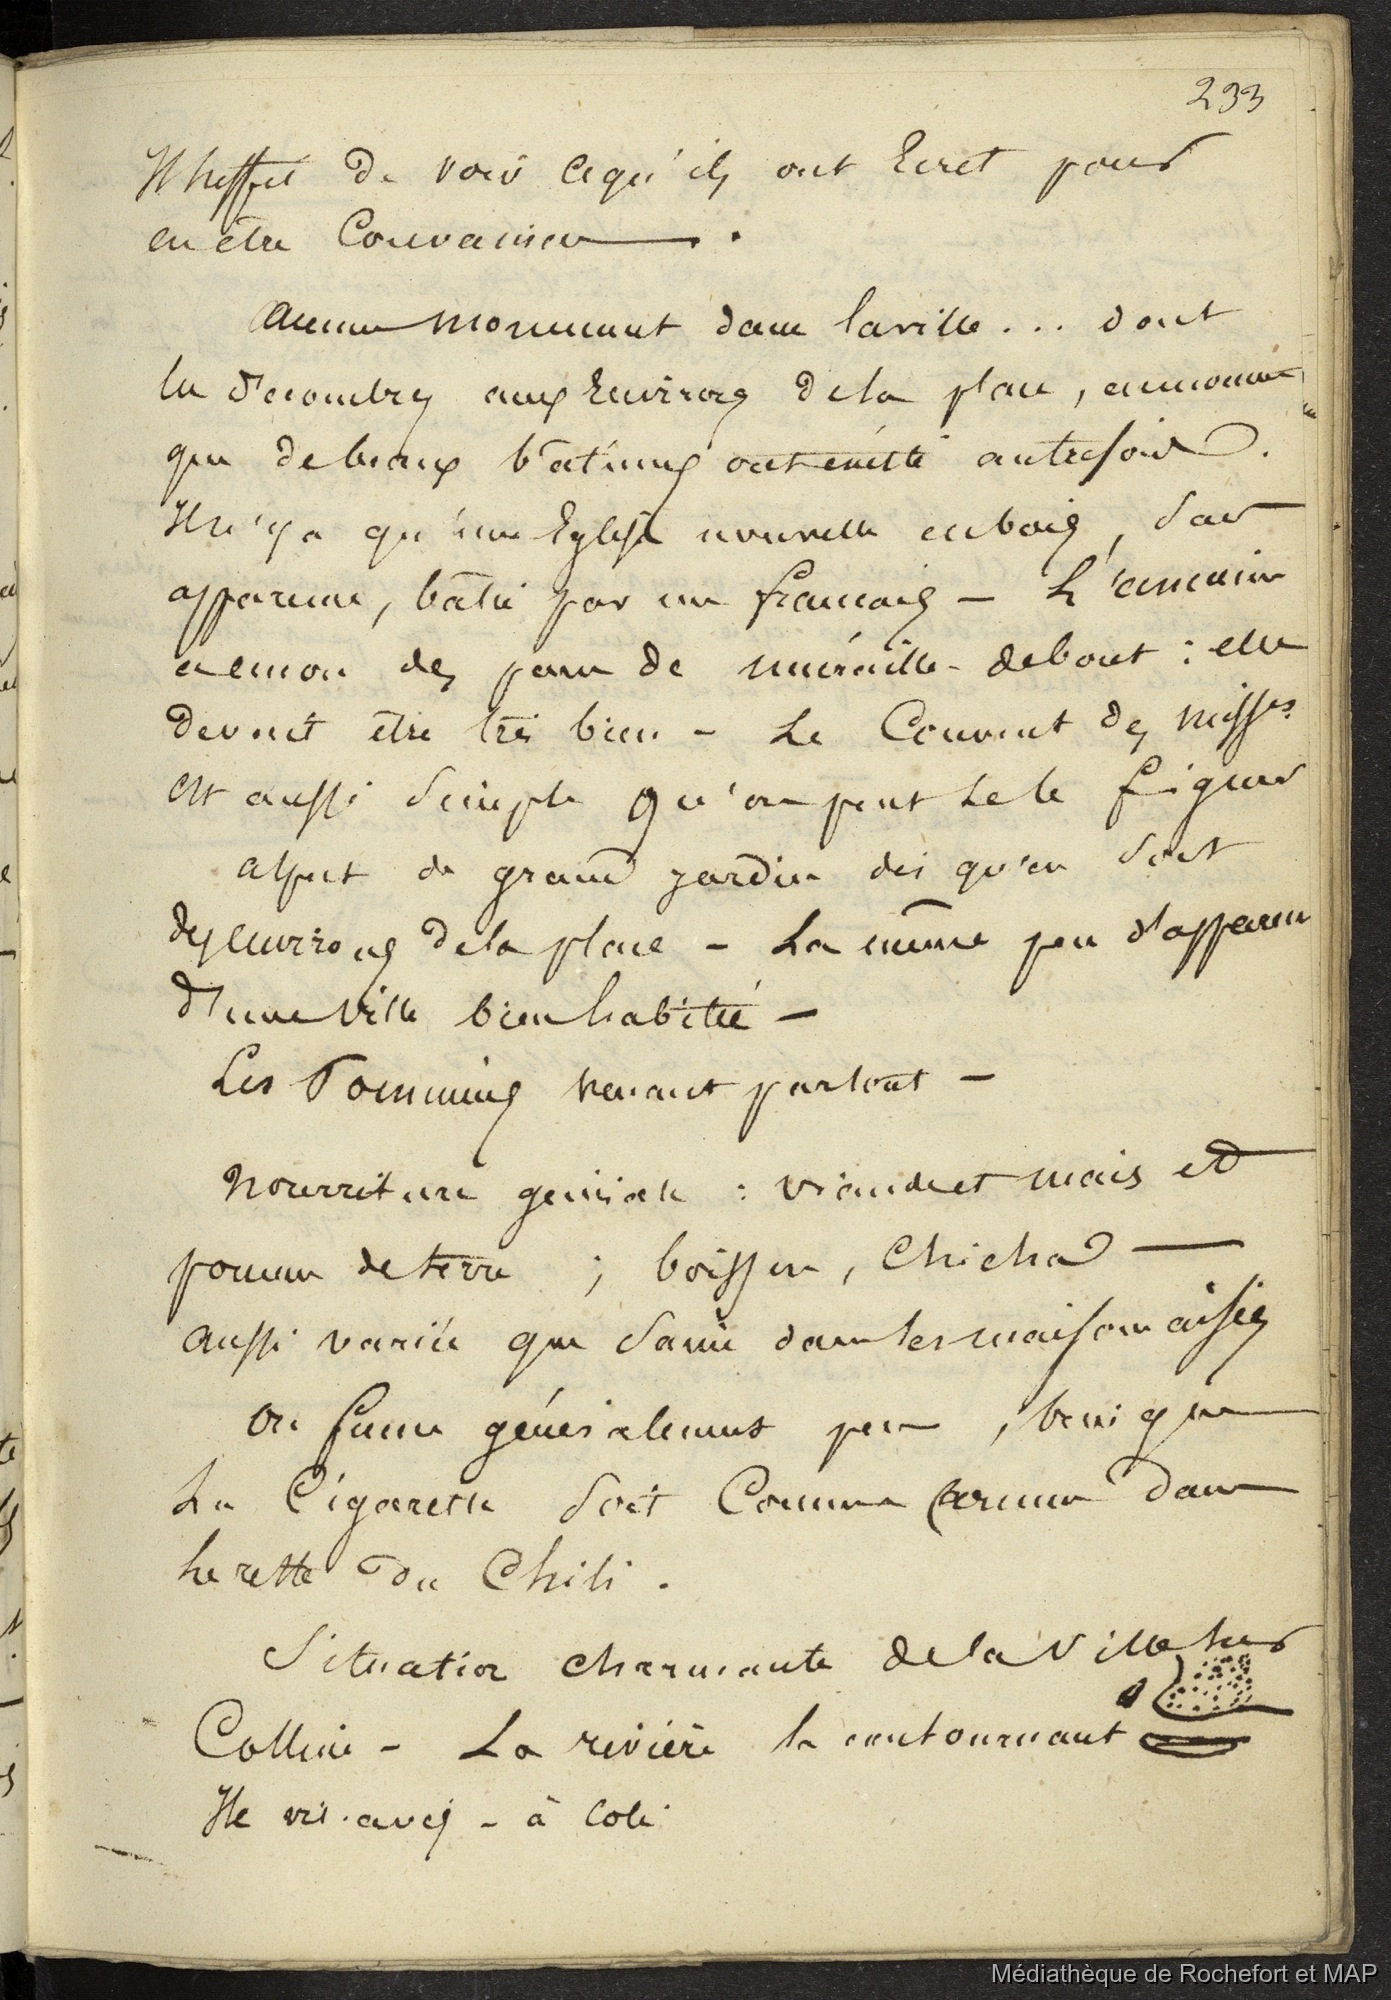 233
Il suffit de voir ce qu'ils ont écrit pour
en être convaincu.
Aucun monument dans la ville... dont
les décombres aux environs de la place, annoncent
que de beaux bâtimens ont existé autrefois.
Il n'y a qu'une Eglise nouvelle en bois, sans
apparence, bâtie par un français – L'ancienne
a encor des pans de muraille debout : elle
devait être très bien – Le Couvent des miss.res
est aussi simple qu'on peut se le figurer
aspect de grand jardin dès qu'on sort
des environs de la place – La même peu d'apparence
d'une ville bien habitée –
Les Pommiers venant partout –
Nourriture générale : viande et mais et
pommes de terre ; boisson, Chicha —
aussi variée que saine dans les maisons aisées
On fume généralement peu, bien que
La Cigarette soit comme dans
le reste du Chili.
Situation charmante de la Ville sur
Colline – La rivière la contournant
Ile vis-avis – à coté
Médiathèque de Rochefort et MAP